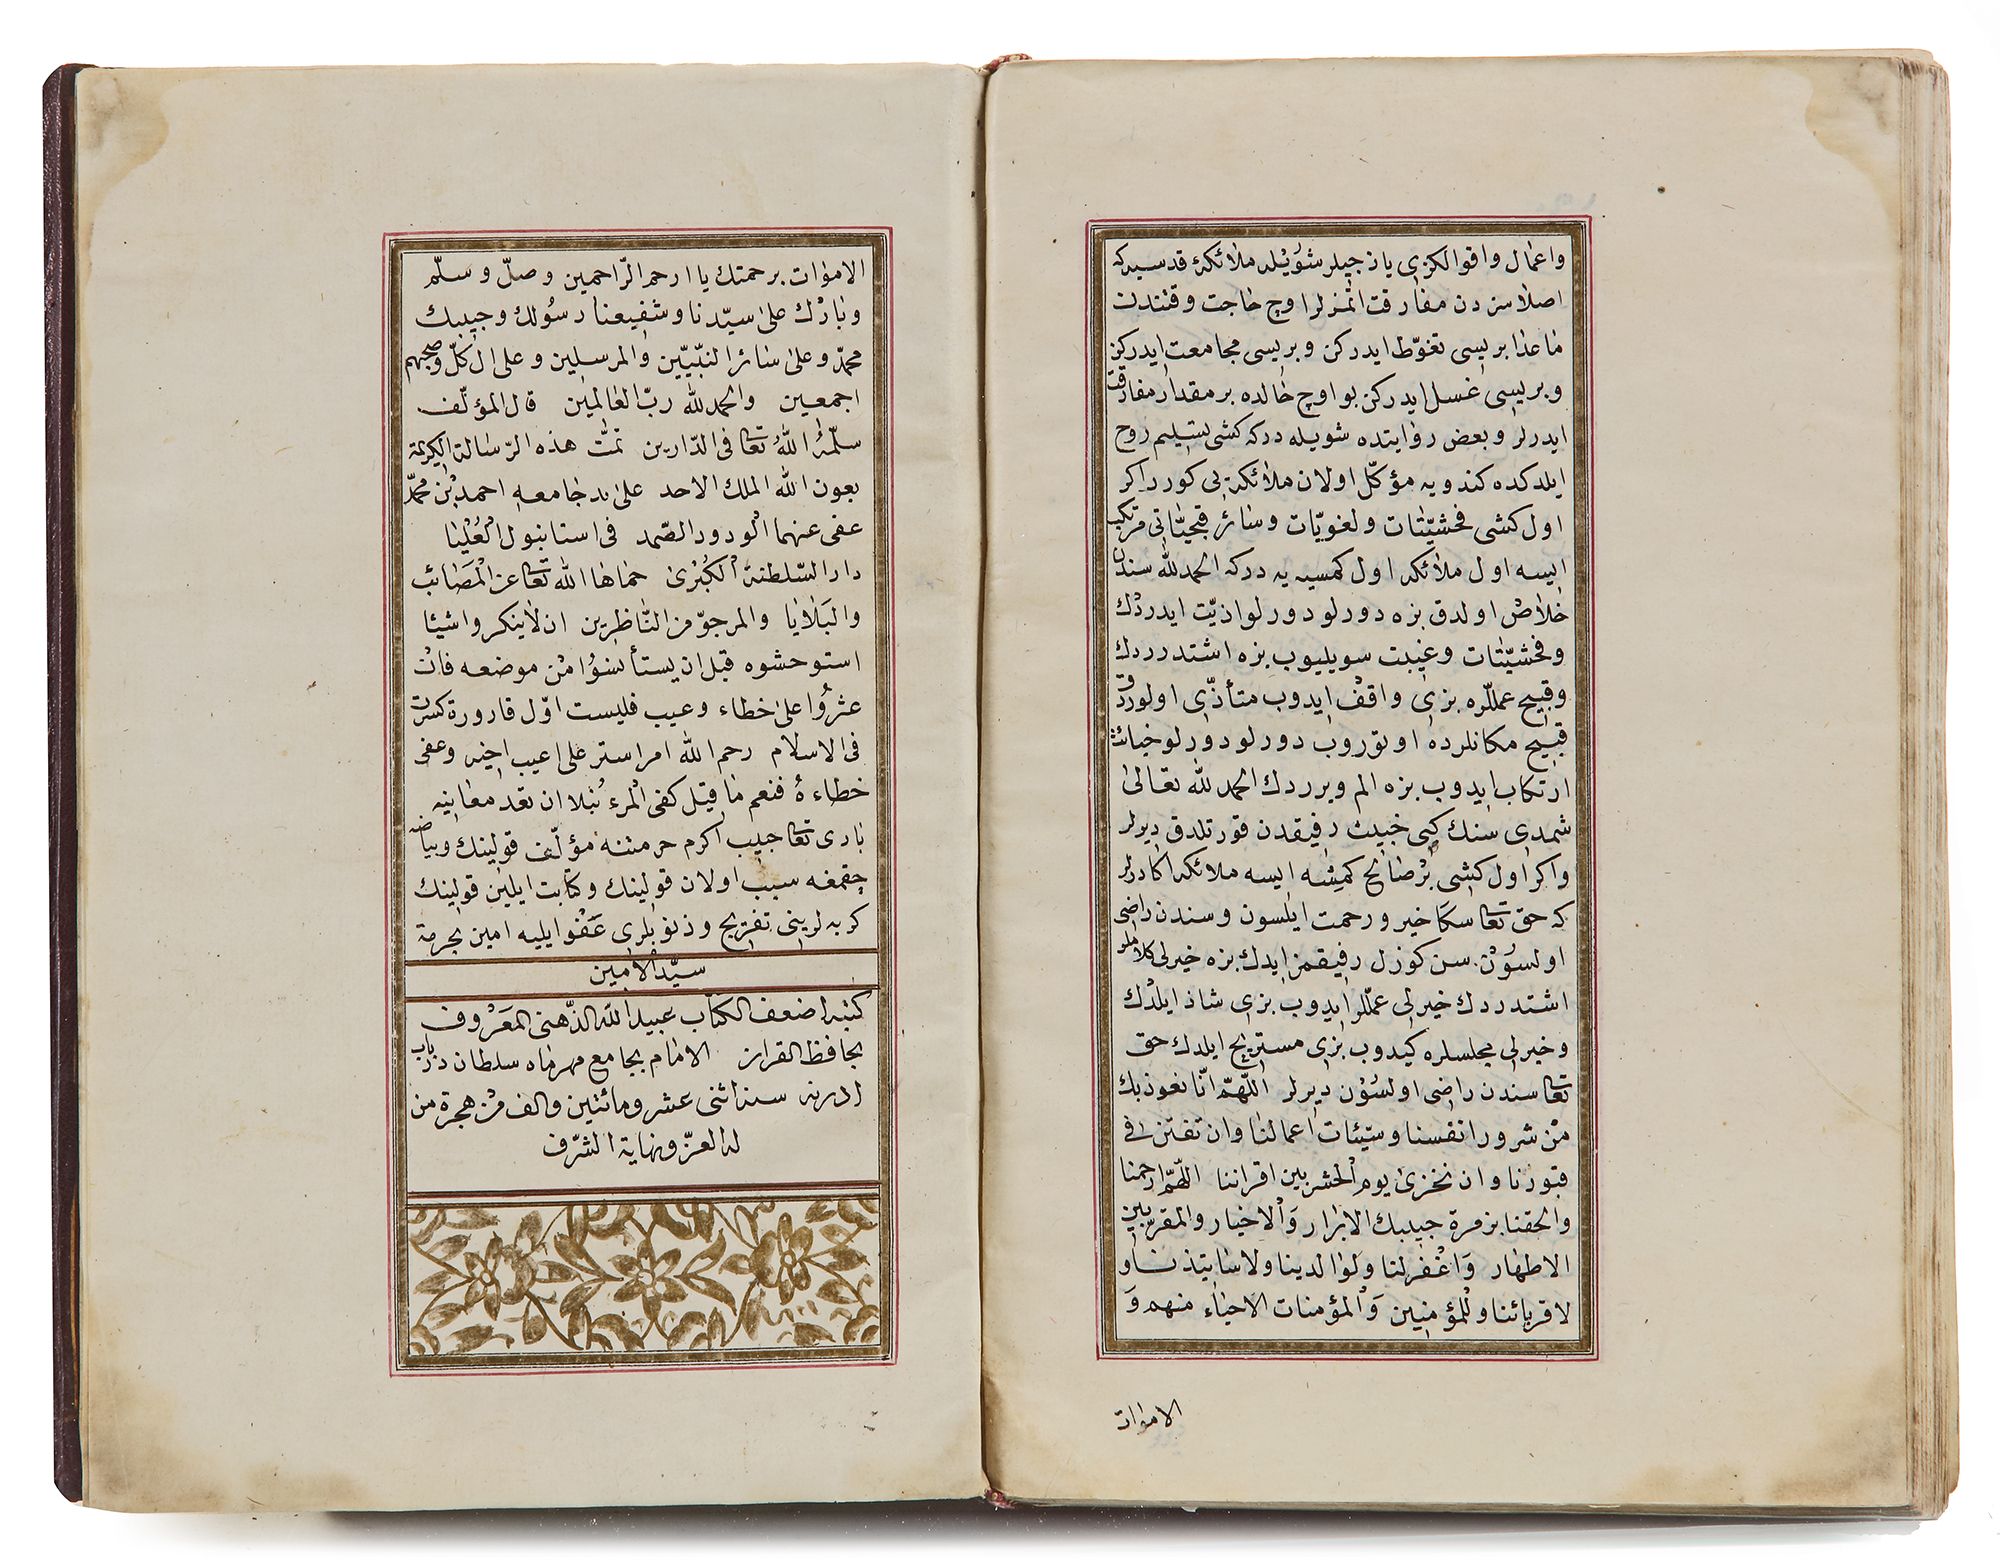 واعمال واقوالكزی یازجیلر شویله ملائكهٔ قدسیه كه
اصلا سزدن مفارقت اتمزلر اوچ حاجت وقتندن
ماعدا بریسی تغوّط ایدركن وبریسی مجامعت ایدركن
وبریسی غسل ایدركن بو اوچ حالده بر مقدار مفارقت
ایدرلر وبعض روایتده شویله دركه كشی تسلیم روح
ایلدكده كندویه مؤكّل اولان ملائكه‌یی كورر اكر
اول كشی فحشیّات ولغویّات وسائر قبحیّاتی مرتكب
ایسه اول ملائكه اول كمسیه یه دركه الحمد لله سندن
خلاص اولدق بزه دورلو دورلو اذیّت ایدردك
وفحشیّات وغیبت سویلیوب بزه اشتدرردك
وقبیح عمللره بزی واقف ایدوب متأذّی اولوردق
قبیح مكانلرده اوتوروب دورلو دورلو خباثت
ارتكاب ایدوب بزه الم ویرردك الحمد لله تعالی
شمدی سنك كبی خبیث رفیقدن قورتلدق دیرلر
واكر اول كشی بر صالح كمسه ایسه ملائكه اكا دیرلر
كه حق تعا سكا خیر ورحمت ایلسون وسندن راضی
اولسون سن كوزل رفیقمز ایدك بزه خیرلی كلاملر
اشتدردك خیرلی عمللر ایدوب بزی شاذ ایلدك
وخیرلی مجلسلره كیدوب بزی مستریح ایلدك حق
تعا سندن راضی اولسون دیرلر اللّهمّ انّا نعوذ بك
من شرور انفسنا وسیّئات اعمالنا وان تفتن فی
قبورنا وان نخزی یوم الحشر بین اقراننا اللّهمّ ارحمنا
والحقنا بزمرة حبیبك الابرار والاخیار والمقرّبین
الاطهار واغفر لنا ولوالدینا ولاساتیذنا و
لاقربائنا وللمؤمنین والمؤمنات الاحیاء منهم و
الاموات
الاموات برحمتك یا ارحم الرّاحمین وصلّ وسلّم
وبارك علی سیّدنا وشفیعنا رسولك وحبیبك
محمّد وعلی سائر النبیّین والمرسلین وعلی ال كلّ وصحبهم
اجمعین والحمد لله ربّ العالمین قال المؤلّف
سلّمه الله تعا فی الدّارین تمّت هذه الرّسالة الكریمة
بعون الله الملك الاحد علی ید جامعه احمد بن محمّد
عفی عنهما الودود الصّمد فی استانبول العُلیا
دار السّلطنة الكُبری حماها الله تعا عن المصائب
والبلایا والمرجوّ من النّاظرین ان لا ینكروا شیئا
استوحشوه قبل ان یستأنسوا من موضعه فان
عثروا علی خطاء وعیب فلیست اوّل قارورة كسرت
فی الاسلام رحم الله امرا ستر علی عیب اخیه وعفی
خطاءهٔ فنعم ما قیل كفی المرء نُبلا ان تعد معاییبه
باری تعا حبیب اكرم حرمتنه مؤلّف قولینك وبیاضه
چقمغه سبب اولان قولینك وكتابت ایلین قولینك
كربه لرینی تفریح وذنوبلری عفو ایلیه امین بحرمة
سیّد الامین
كتبه اضعف الكتّاب عبید الله الذّهنی المعروف
بحافظ القران الامام بجامع مهرماه سلطان در باب
ادرنه سنه اثنی عشر ومائتین والف من هجرة من
له العزّ ونهایة الشّرف